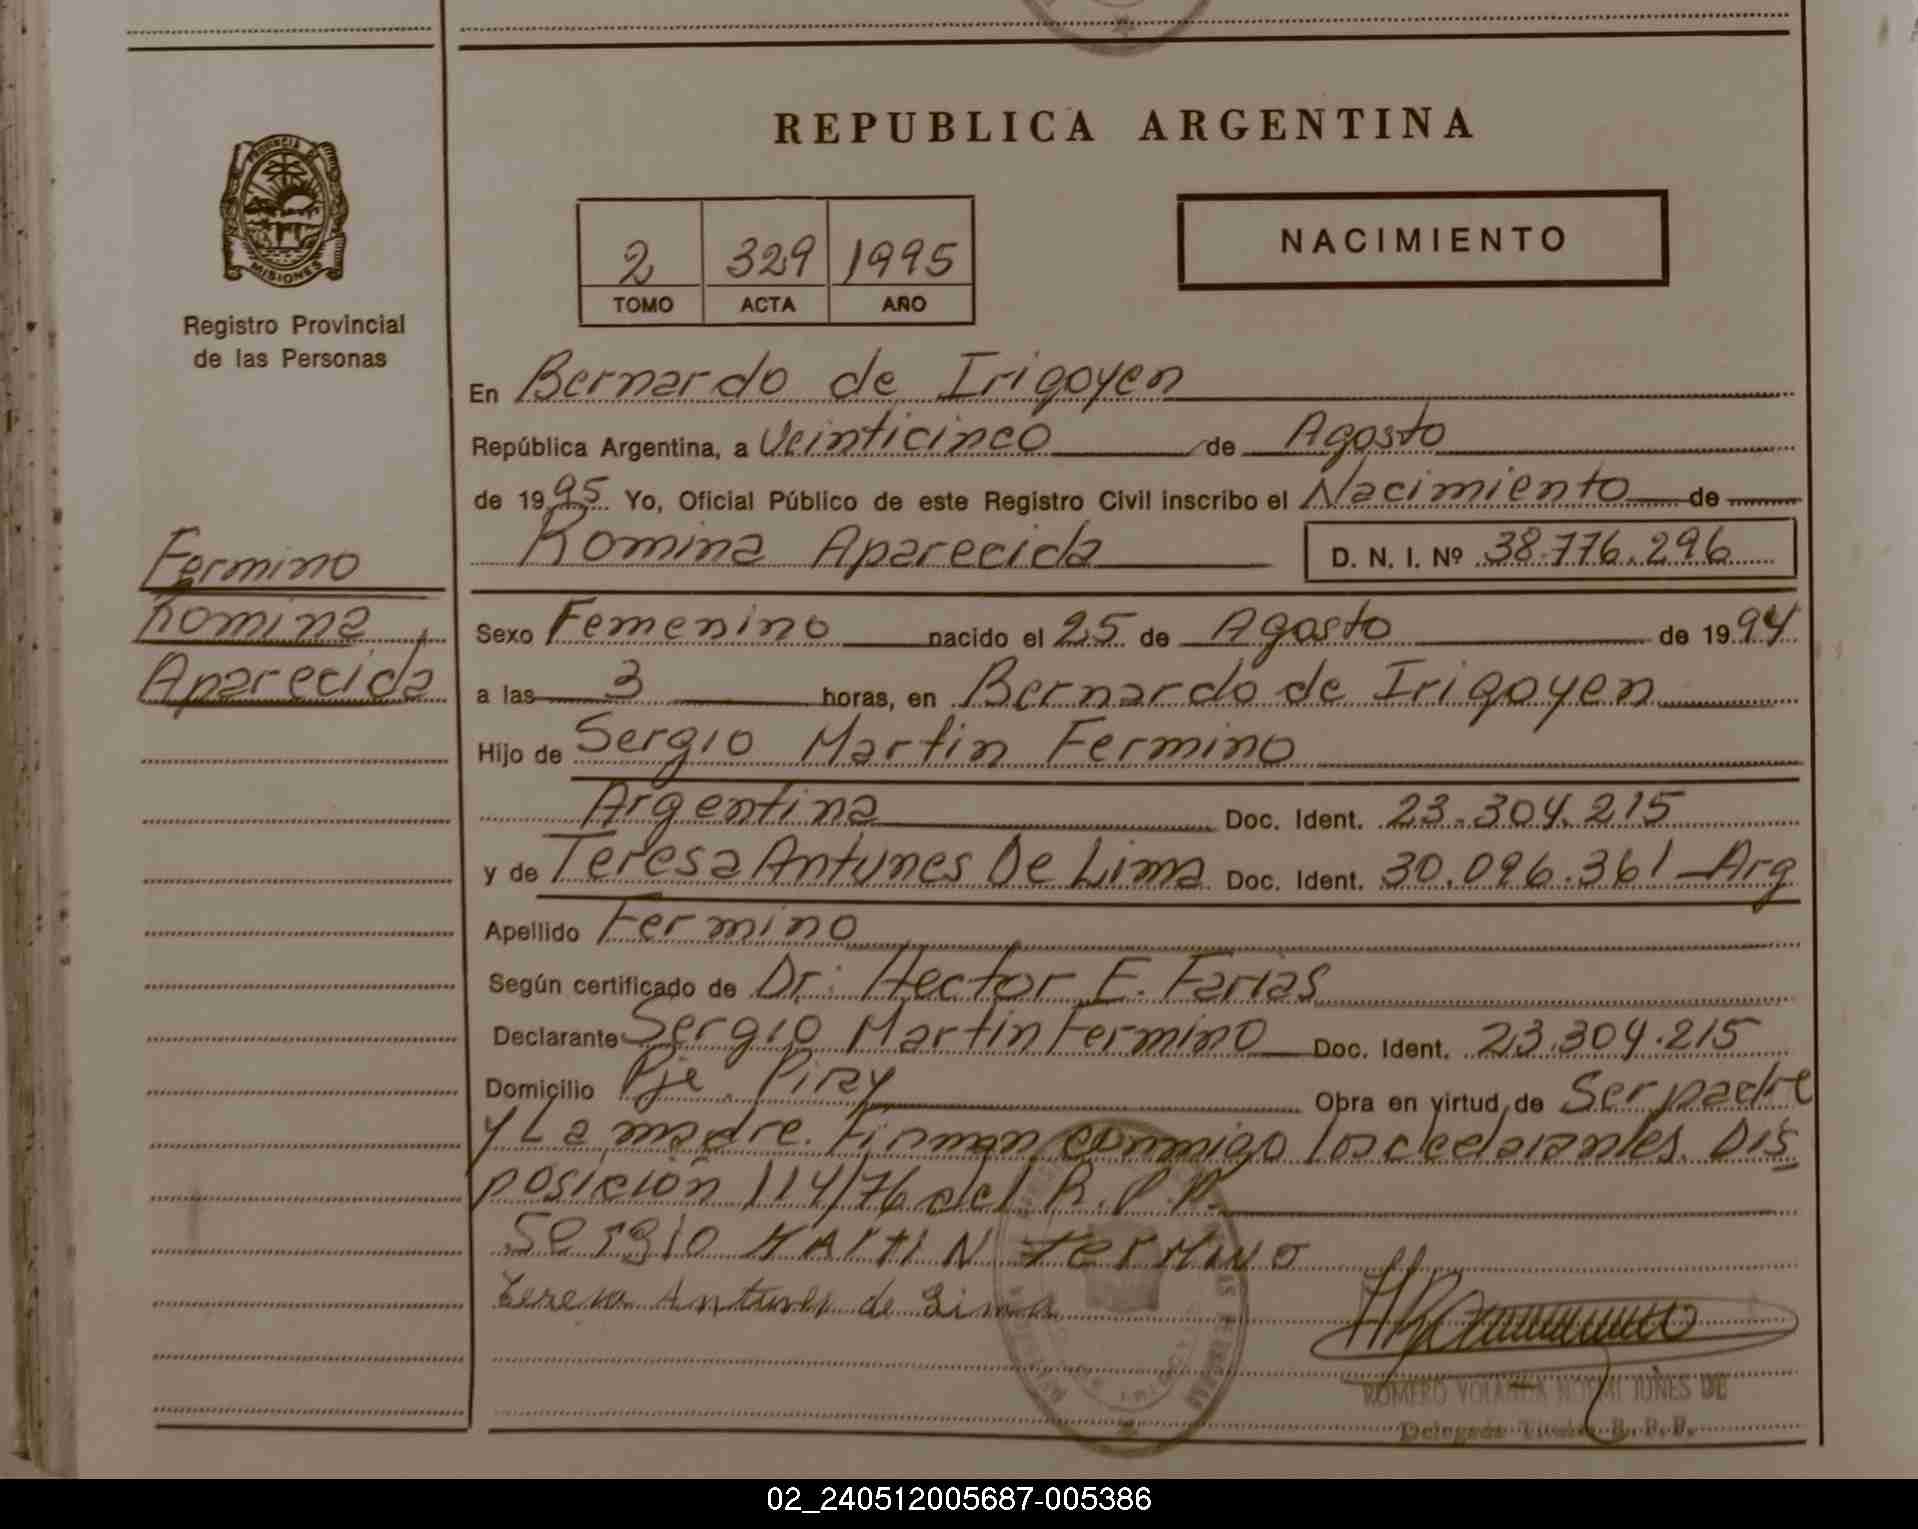 REPUBLICA ARGENTINA
PROVINCIA DE
MISIONES
Registro Provincial
de las Personas
2 329 1995
TOMO ACTA AÑO
NACIMIENTO
En Bernardo de Irigoyen
República Argentina, a Veinticinco de Agosto
de 1995 Yo, Oficial Público de este Registro Civil inscribo el Nacimiento de
Romina Aparecida D. N. I. Nº 38.776.296
Fermino
Romina
Aparecida
Sexo Femenino nacido el 25 de Agosto de 1994
a las 3 horas, en Bernardo de Irigoyen
Hijo de Sergio Martin Fermino
Argentina Doc. Ident. 23.304.215
y de Teresa Antunes De Lima Doc. Ident. 30.096.361 - Arg
Apellido Fermino
Según certificado de Dr: Hector E. Farias
Declarante Sergio Martin Fermino Doc. Ident. 23.304.215
Domicilio Pje. Piray Obra en virtud de Ser padre
y La madre. Firman conmigo los declarantes. Dis
posición 114/76 del R.P.P.
Sergio MARTIN FERMINO
Teresa Antunes de Lima
ROMERO YOLANDA NOEMI DE
Delegada Titular R. P. P.
02_240512005687-005386